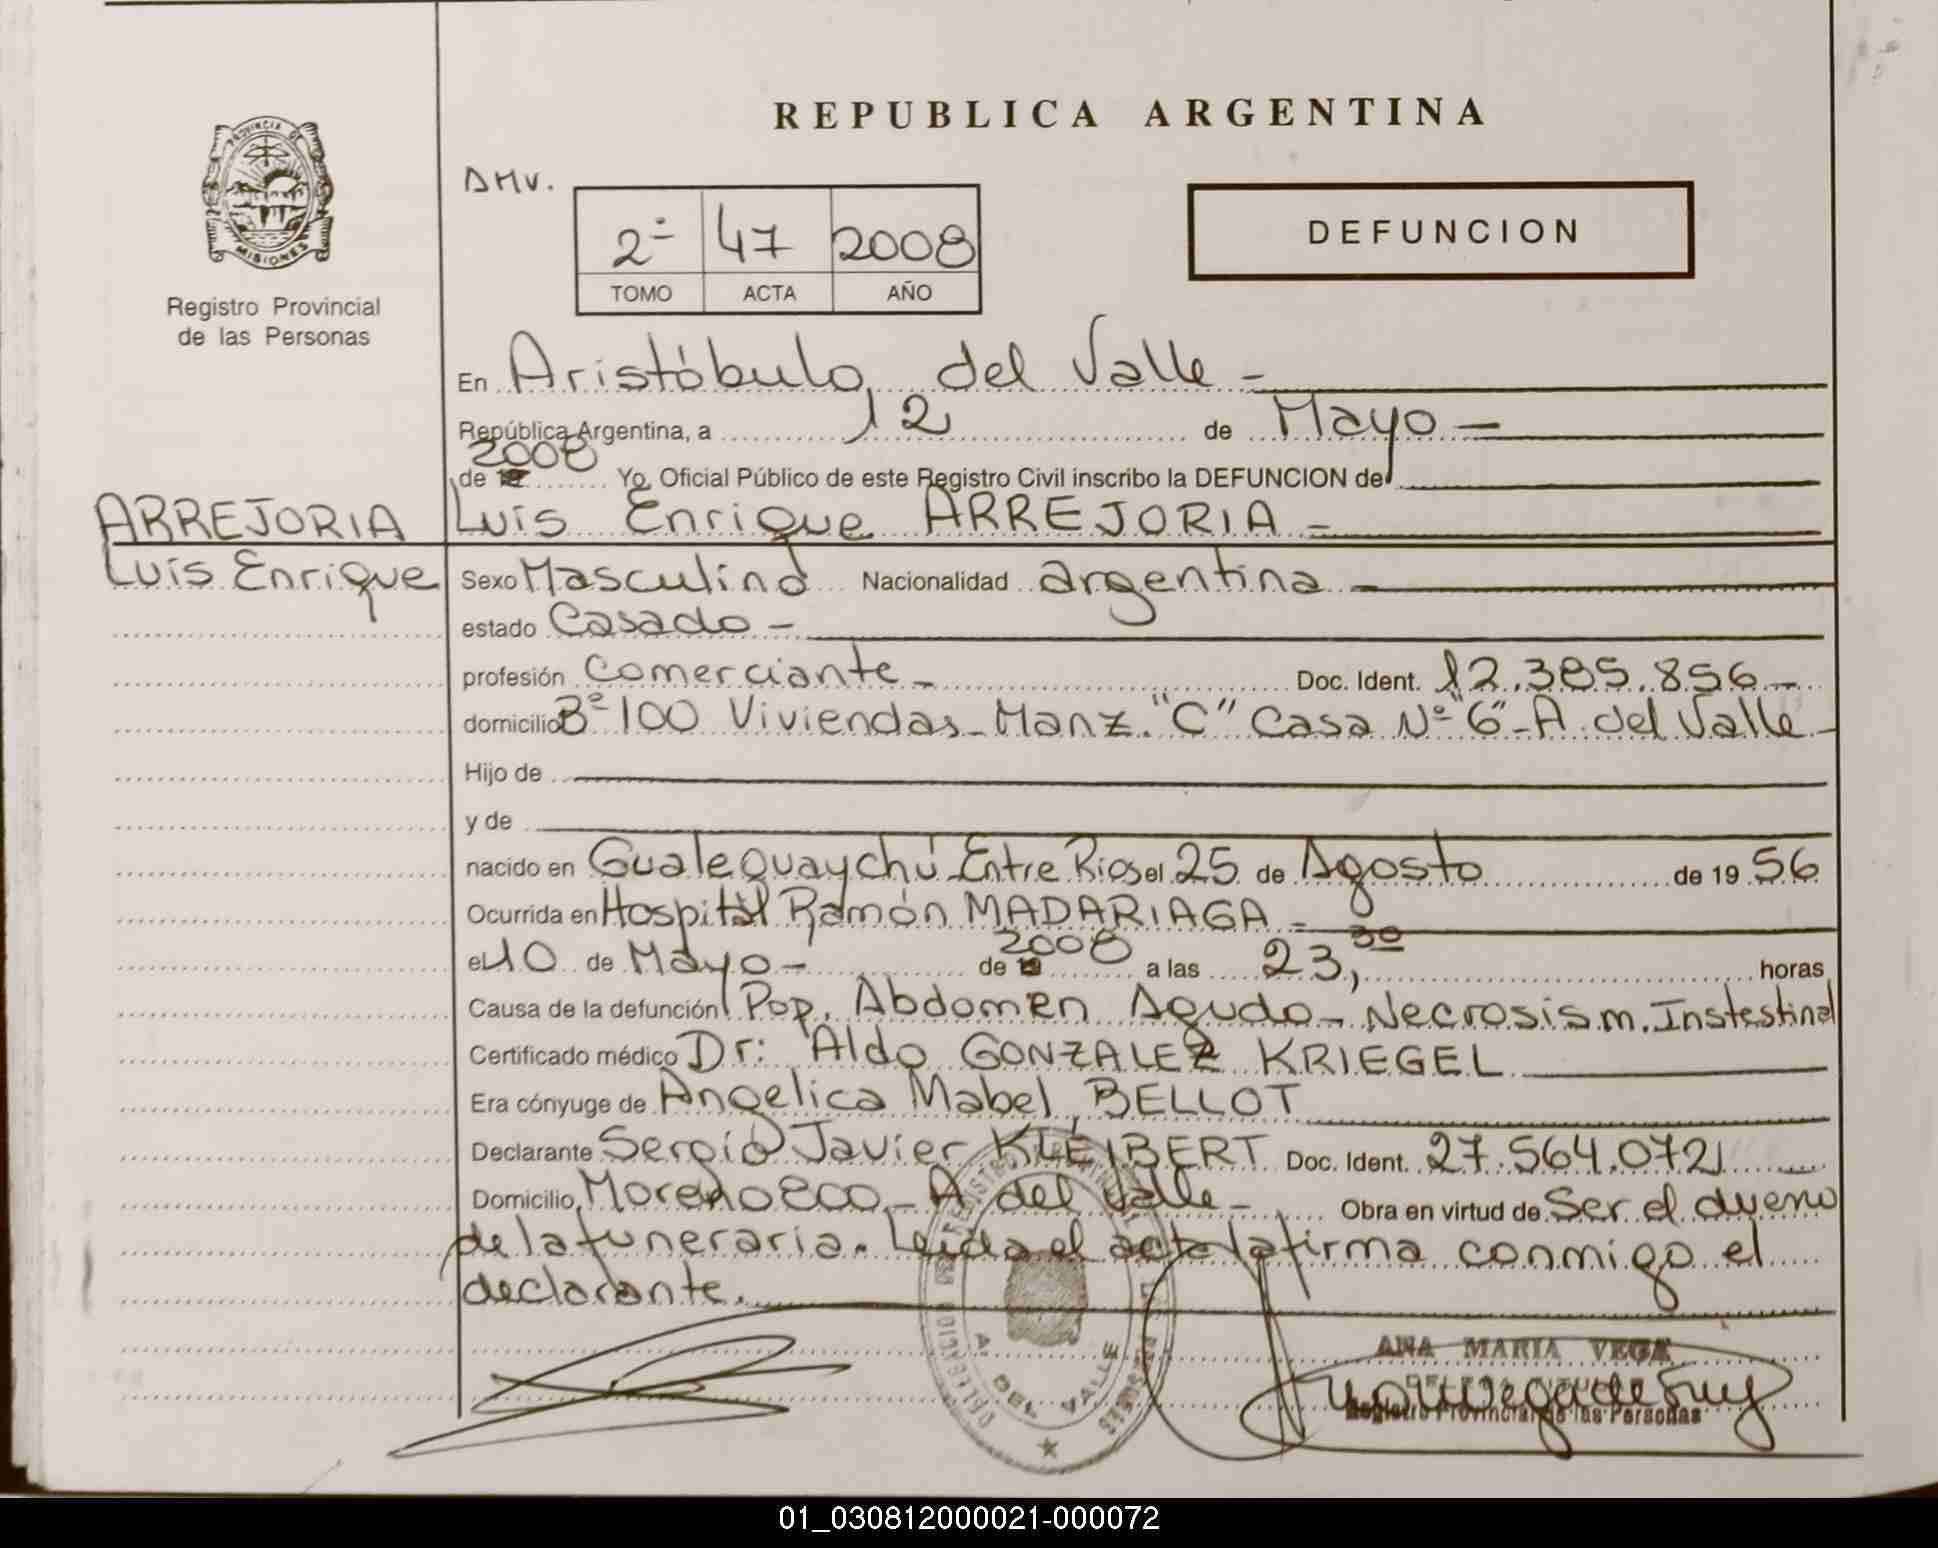 REPUBLICA ARGENTINA
PROVINCIA DE
MISIONES
Registro Provincial
de las Personas
DMV.
2º 47 2008
TOMO ACTA AÑO
DEFUNCION
En Aristóbulo del Valle -
República Argentina, a 12 de Mayo -
de 2008 Yo, Oficial Público de este Registro Civil inscribo la DEFUNCION de
ARREJORIA
Luis Enrique
Luis Enrique ARREJORIA -
Sexo Masculino Nacionalidad argentina -
estado Casado -
profesión Comerciante - Doc. Ident. 12.385.856 -
domicilio Bº 100 Viviendas - Manz. "C" Casa Nº "6" - A. del Valle -
Hijo de
y de
nacido en Gualeguaychú - Entre Rios el 25 de Agosto de 19 56
Ocurrida en Hospital Ramón MADARIAGA -
el 10 de Mayo - de 2008 a las 23,30 horas
Causa de la defunción Pop. Abdomen Agudo - Necrosis m. Instestinal
Certificado médico Dr: Aldo GONZALEZ KRIEGEL
Era cónyuge de Angelica Mabel BELLOT
Declarante Sergio Javier KLEIBERT Doc. Ident. 27.564.072
Domicilio Moreno 800 - A del Valle - Obra en virtud de Ser el dueño
de la funeraria. Leida el acta la firma conmigo el
declarante.
A. DEL VALLE
ANA MARIA VEGA
Registro Provincial de las Personas
01_030812000021-000072